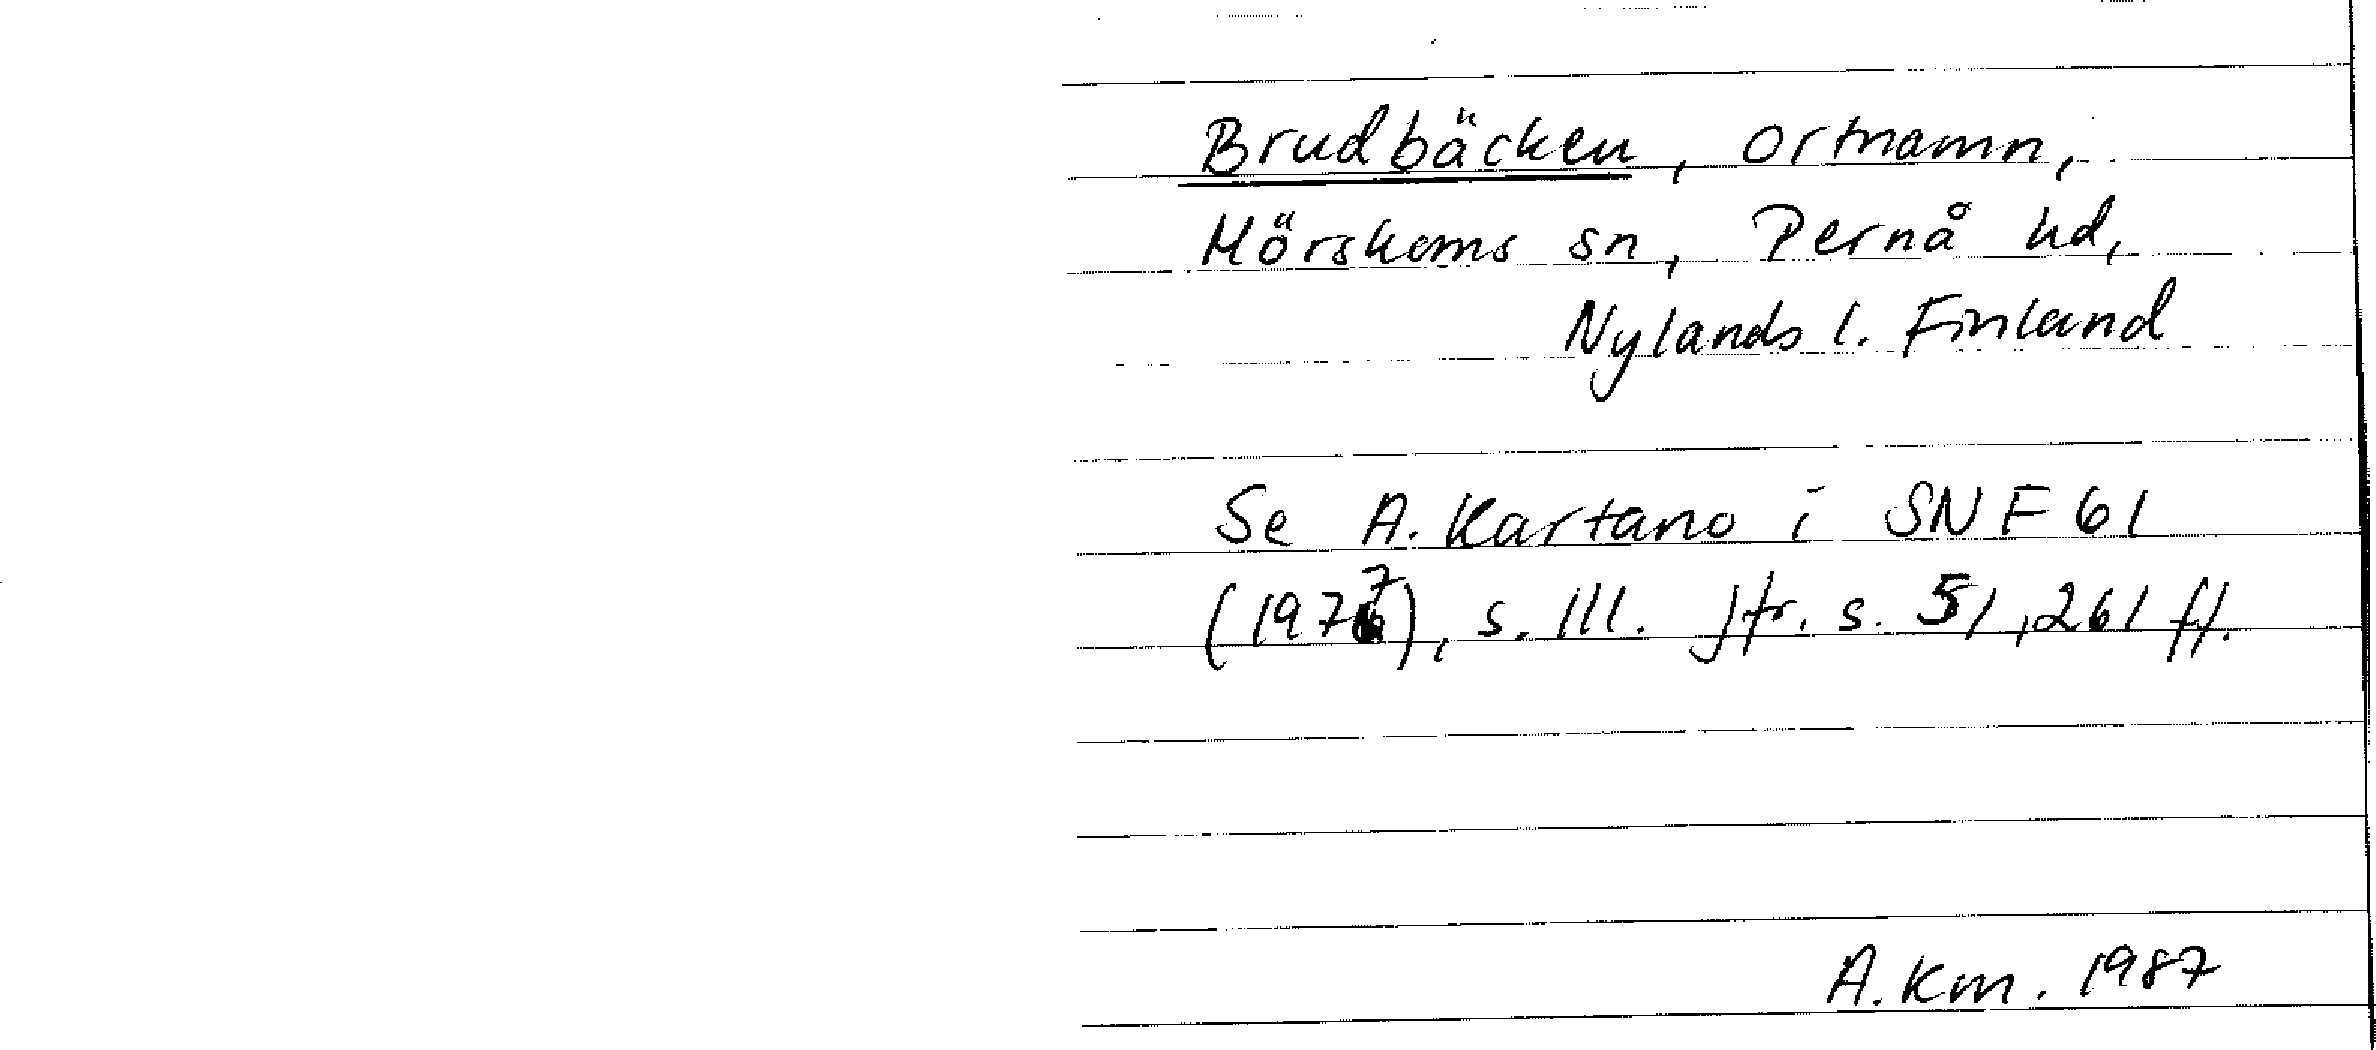 Brudbäcken, ortnamn,
Mörskoms sn, Pernå hd,
Nylands l. Finland
Se A. Kartano i SNF 61
(1977), s. 111. Jfr. s. 51, 261 ff.
A. Km. 1987